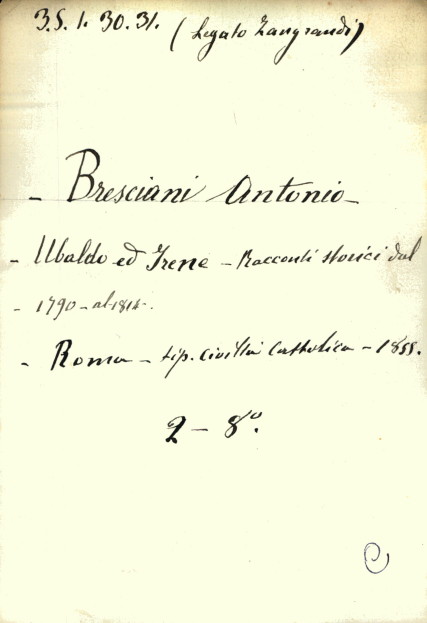 35. 1. 30. 31. (Legato Zangrandi)
- Bresciani Antonio -
- Ubaldo ed Irene - Racconti storici dal
- 1790 - al 1814 -.
- Roma - tip. civiltà Catholica - 1855.
2 - 8°.
C